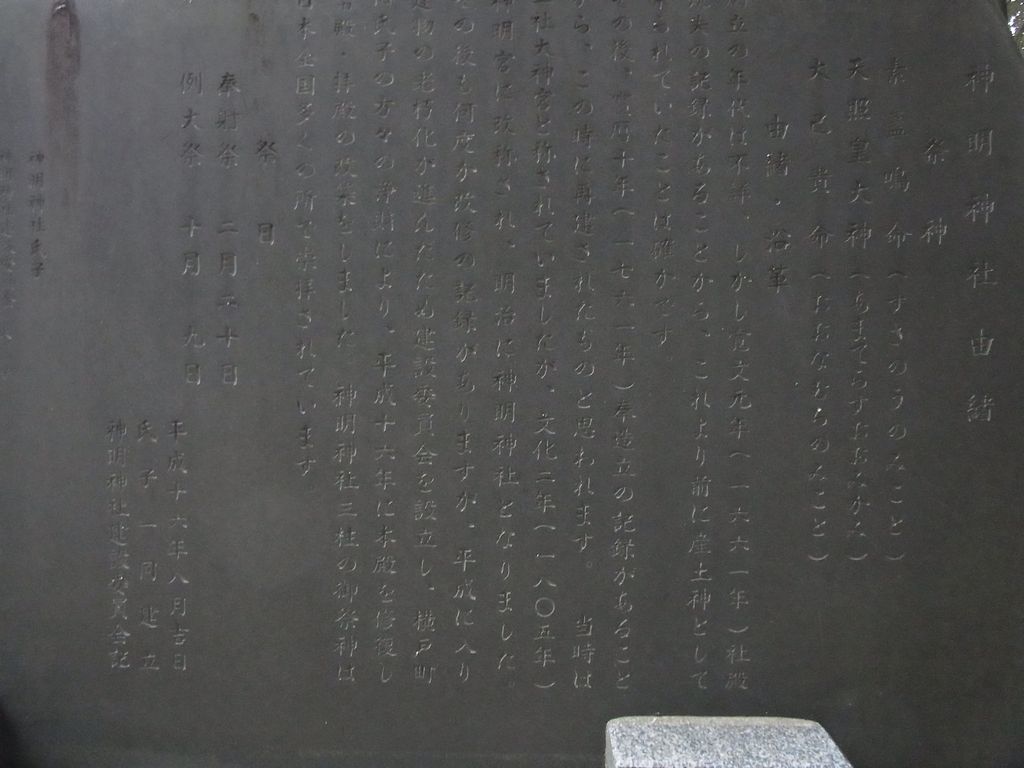 神明神社由緒
祭神
素盞嗚命(すさのうのみこと)
天照皇大神(あまてらすおおみかみ)
大己貴命(おおなむちのみこと)
由緒・沿革
立の年代は不詳、しかし寛文元年(一六六一年)社殿
失の記録があることから、これより前に産土神として
られていたことは確かです。
の後、宝暦十年(一七六一年)奉造立の記録があること
ら、この時に再建されたものと思われます。 当時は
社大神宮と称されていましたが、文化二年(一八〇五年)
明宮に改称され、明治に神明神社となりました。
の後も何度か改修の記録がありますが、平成に入り
物の老朽化が進んだため建設委員会を設立し、横戸町
氏子の方々の浄財により、平成十六年に本殿を修復し
殿・拝殿の改築をしました 神明神社三柱の御祭神は
日本全国多くの所で崇拝されています
祭日
奉射祭 二月二十日
例大祭 十月 九日
平成十六年八月吉日
氏子一同建立
神明神社建設委員会記
神明神社氏子